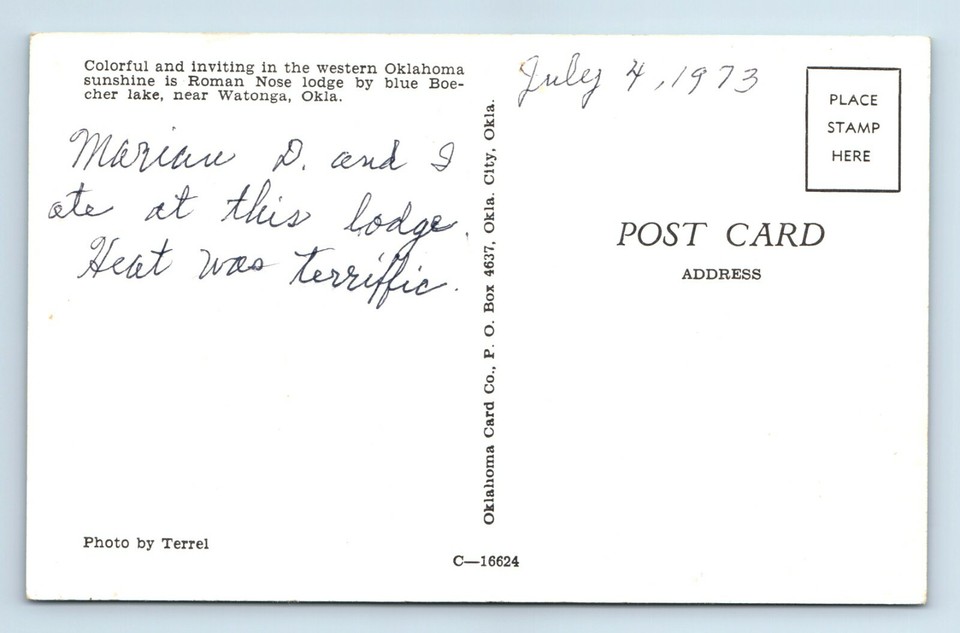 Colorful and inviting in the western Oklahoma
sunshine is Roman Nose lodge by blue Boe-
cher lake, near Watonga, Okla.
Marian D. and I
ate at this lodge.
Heat was terriffic.
Photo by Terrel
Oklahoma Card Co., P. O. Box 4637, Okla. City, Okla.
C—16624
July 4, 1973
PLACE
STAMP
HERE
POST CARD
ADDRESS